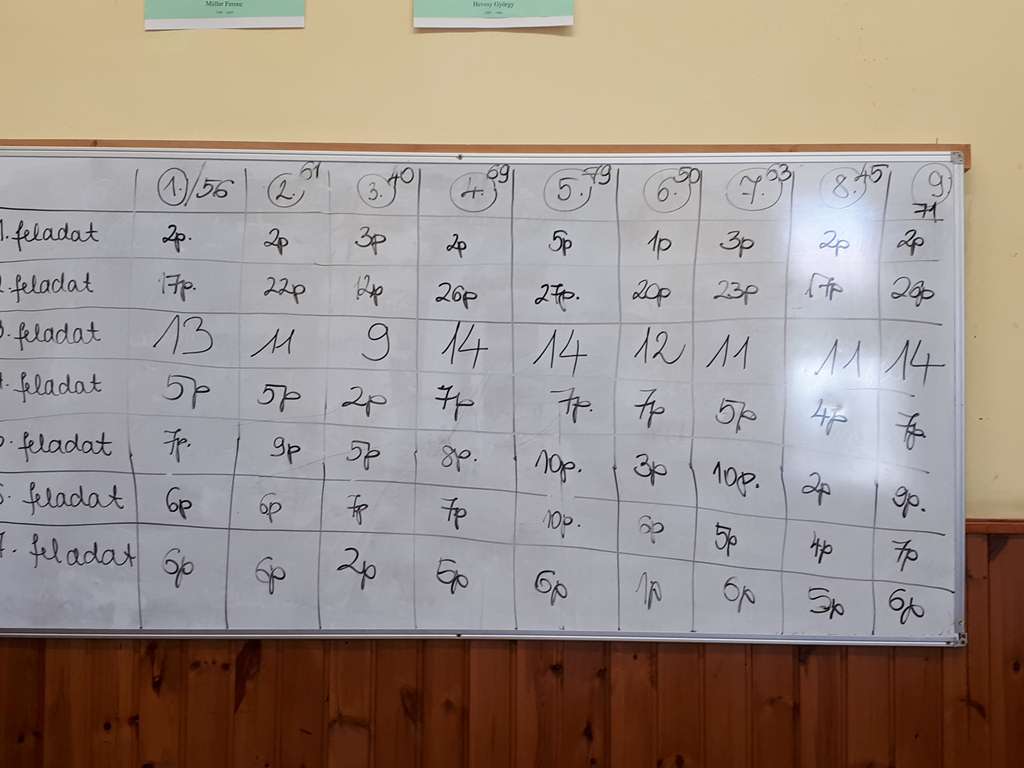 Müller Ferenc
Hevesy György
1./56 2. 61 3. 40 4. 69 5. 79 6. 50 7. 63 8. 45 9 71
1. feladat 2p. 2p 3p 2p 5p 1p 3p 2p 2p
2. feladat 17p. 22p 12p 26p 27p. 20p 23p 17p 26p
3. feladat 13 11 9 14 14 12 11 11 14
4. feladat 5p 5p 2p 7p 7p. 7p 5p 4p 7p
5. feladat 7p. 9p 5p 8p. 10p. 3p 10p. 2p 9p.
6. feladat 6p 6p 7p 7p 10p. 6p 5p 4p 7p
7. feladat 6p 6p 2p 5p 6p 1p 6p 5p 6p